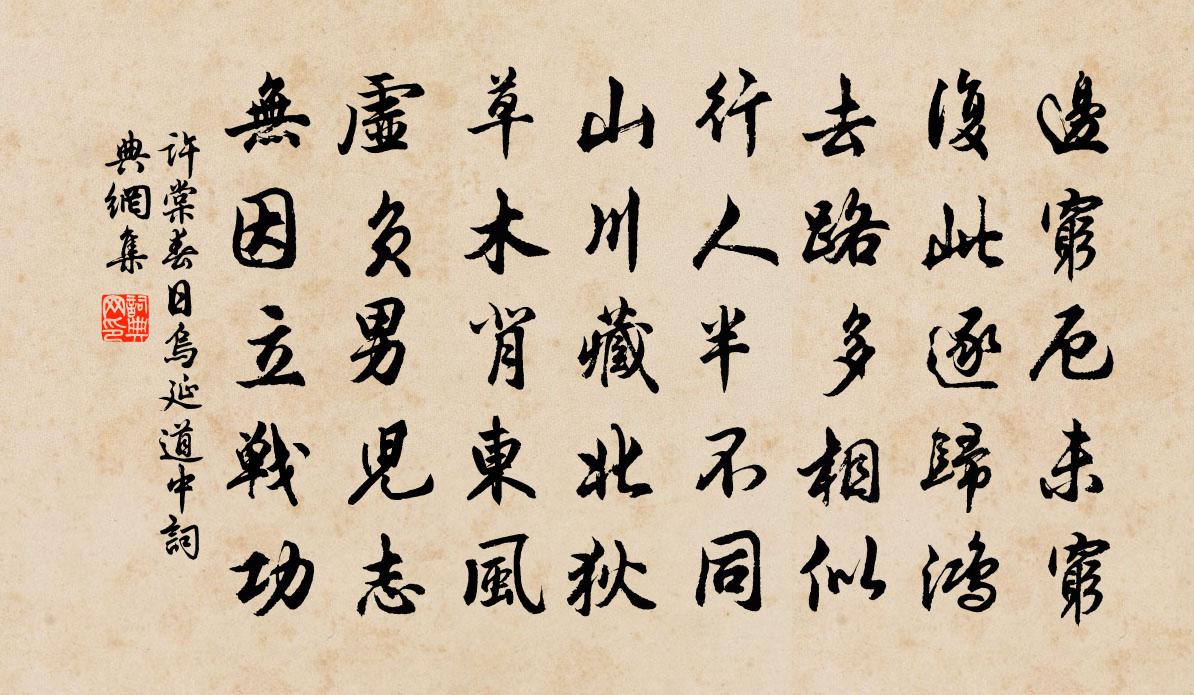 邊窮厄未窮
復此逐歸鴻
去路多相似
行人半不同
山川藏北狄
草木背東風
虛負男兒志
無因立戰功
許棠春日烏延道中詞
典網集
詞典
网印